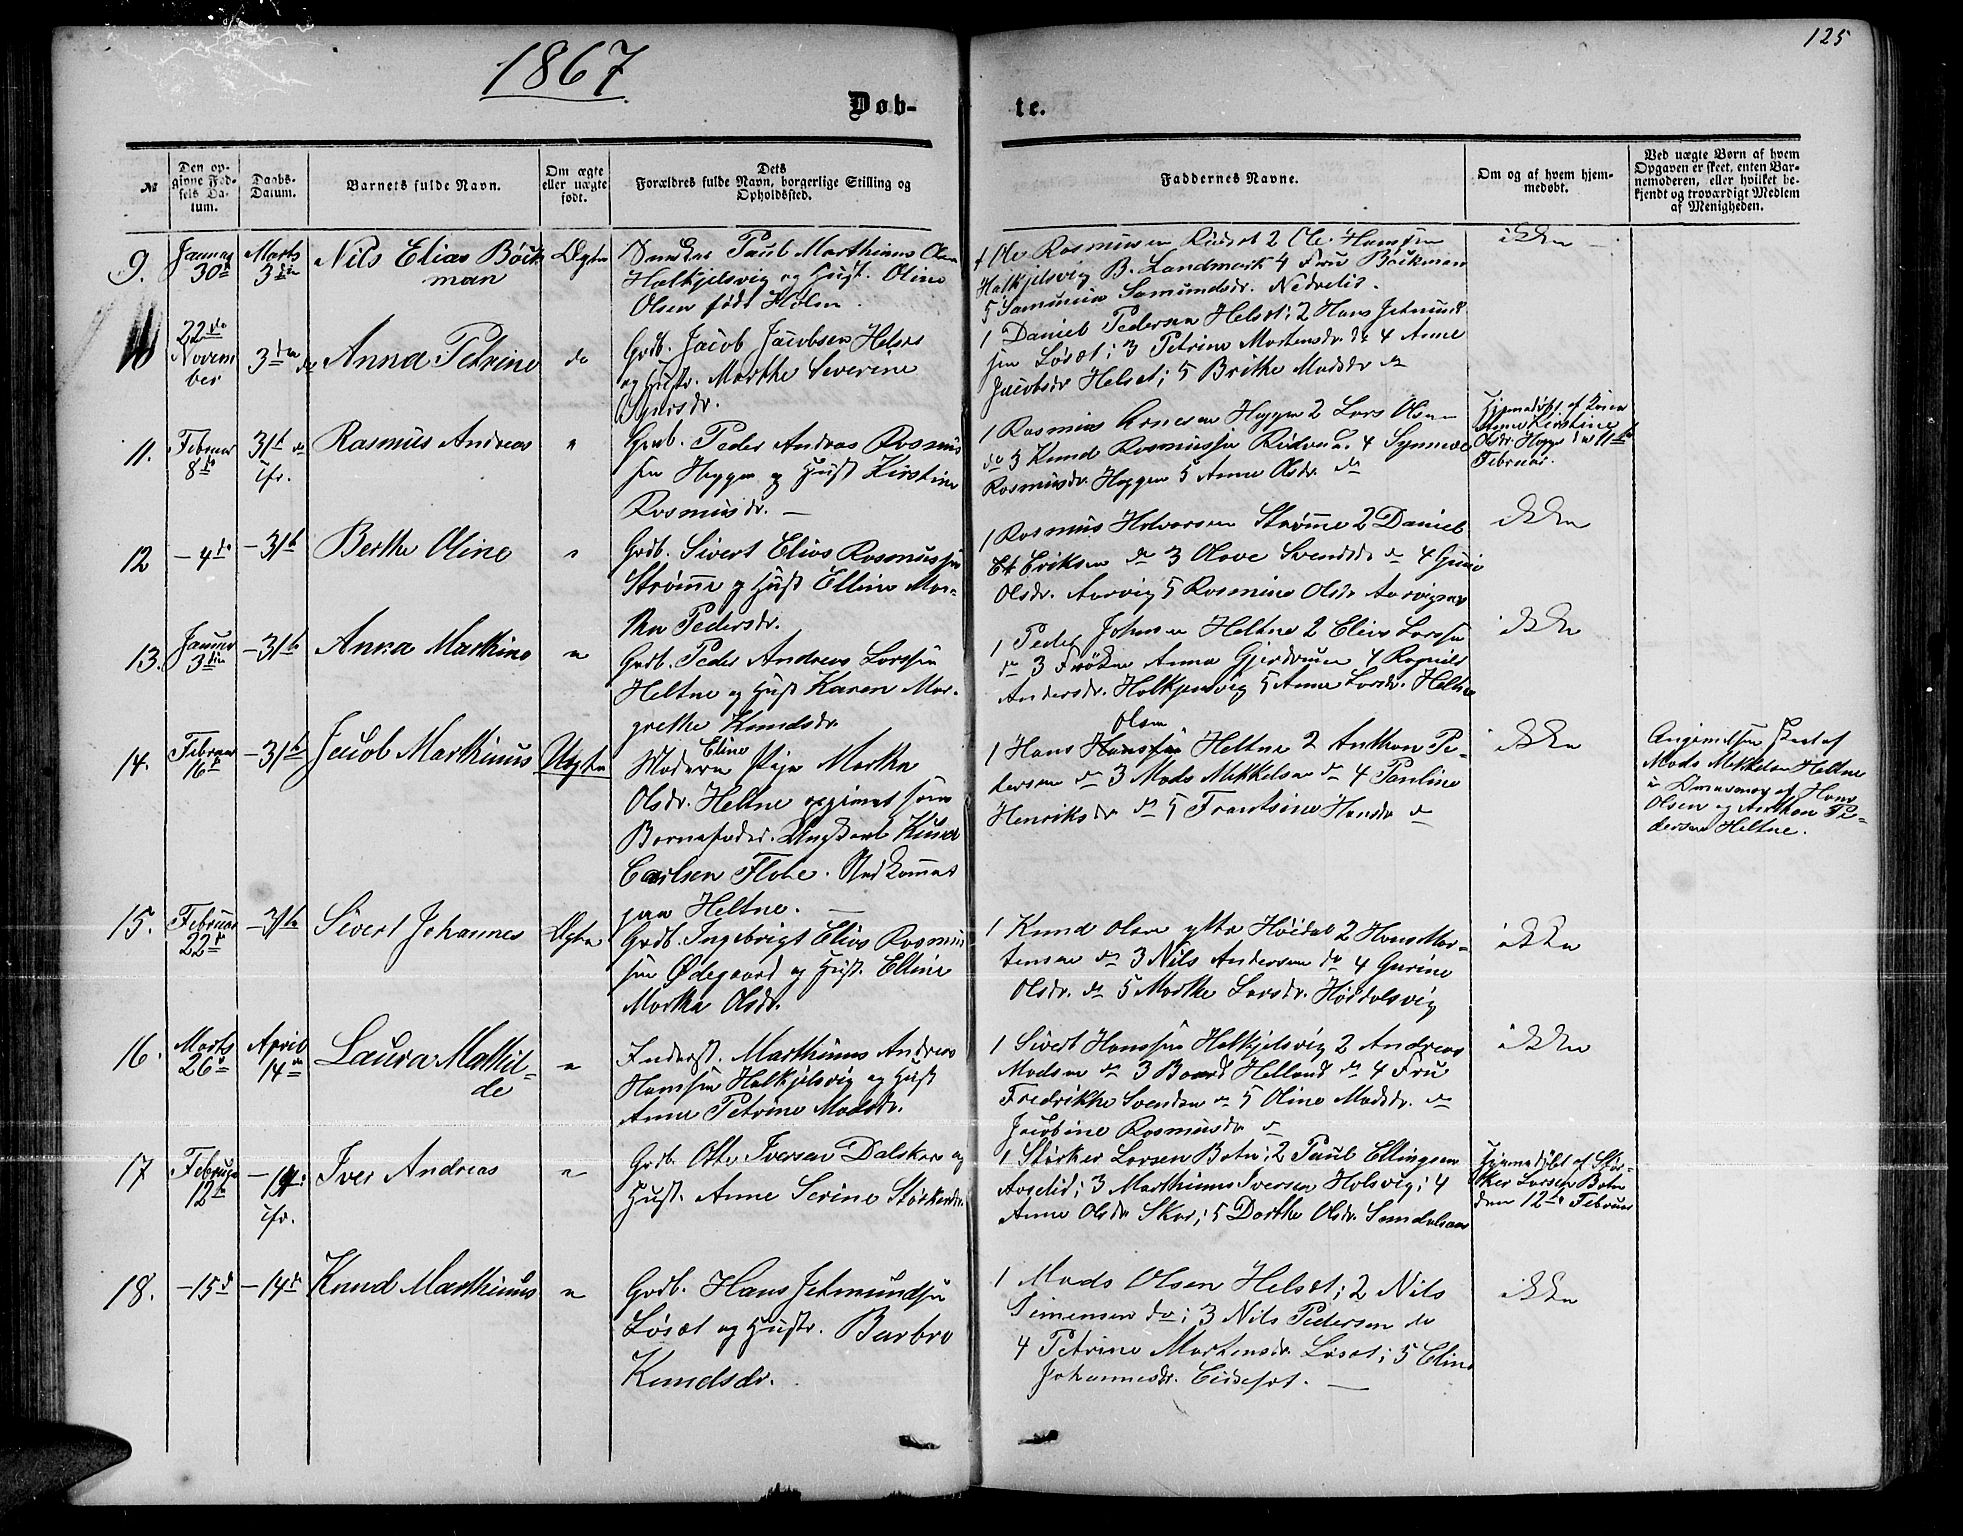 1867
125
Døb-
te.
№
Den op-
givne Fød-
sels Da-
tum.
Daabs-
Datum.
Barnets fulde Navn.
Om ægte
eller uægte
født.
Dets
Forældres fulde Navn, borgerlige Stilling og
Opholdssted.
Faddernes Navne.
Om og af hvem hjem-
medøbt.
Ved uægte Børn af hvem
Opgaven er skeet, enten Bar-
nemoderen, eller hvilket be-
kjendt og troværdigt Medlem
af Menigheden.
9.
Januar
30
Marts
3
Nils Elias Böck-
man
Ægte
Paul Marthinus Olsen
Halkjelsvig og Hust. Oline
Olsen født Holm
1 Ole Rasmussen 2 Ole Hanssen
Halkjelsvig B. Landmark 4 Fru Bøckman
5 Samundsdr. Nedrelid.
ikke
10
22de
Novem
ber
3die do
Anna Petrine
do
Grdb. Jacob Jacobsen Helset
og Hustr. Marthe Severine
Iversdr.
1 Daniel Pedersen Helset; 2 Hans Jetmund
sen Løset; 3 Petrine Mortensdr. do 4 Anne
Jacobsdr Helset; 5 Brithe Madsdr do
11.
Februar
8de
31te do
Rasmus Andreas
"
Grdb. Peder Andreas Rasmus
sen Heggen og Hust Kirstine
Rasmusdr. —
1 Rasmus Arnesen Heggen 2 Lars Olsen
do 3 Knud Rasmussen 4 Synneve
Rasmusdr. Heggen 5 Anne Olsdr. do
Hjemmedøbt af
Anne Kirstine
Olsdr. Heggen 11te
Februar.
12
- 4de
- 31te
Berthe Oline
"
Grdb. Sivert Elias Rasmussen
Strømme og Hust Elline Mar-
the Pedersdr.
1 Rasmus Halvorsen Strømme 2 Daniel
Eriksen do 3 Olave Svendsdr do 4
Olsdr. Aarvig 5 Rasmine Olsdr
ikke
13.
Januar
3die
- 31te
Anna Marthine
"
Grdb. Peder Andreas Larssen
Heltne og Hust Karen Mar-
grethe Knudsdr.
1 Peder Johnsen Heltne 2 Elias Larssen
do 3 Frøken Anna Gjerdrum 4
Andersdr. Halkjelsvig 5 Anne Larsdr. Heltne
ikke
14.
Februar
16
- 31te
Jacob Marthinus
Uægte
Eline
Moderen Pige Marthe
Olsdr. Heltne opgivet som
Barnefader. Ungkarl Knud
Carlsen Flote. Stedkommet
paa Heltne. —
Olsen
1 Hans Hanssen Heltne 2 Anthon Pe-
dersen do 3 Mads Mikkelsen do 4 Pauline
Henriksdr do 5 Frantsine Hansdr do
ikke
Angivelsen skeet af
Mads Mikkelsen Heltne
i Overvær af Hans
Olsen og Anthon Pe-
dersen Heltne.
15.
Februar
22de
- 31te
Sivert Johannes
Ægte
Grdb. Ingebrigt Elias Rasmus
sen Ødegaard og Hust. Elline
Marthe Olsdr.
1 Knud Olsen yttre Høidal 2 Hans Mor-
tensen do 3 Nils Andersen do 4 Gurine
Olsdr. do 5 Marthe Larsdr. Høidalsvig
ikke
16.
Marts
26
April
14de
Laura Mathil-
de
"
Inderst. Marthinus Andreas
Hanssen Halkjelsvig og Hust
Anne Petrine Madsdr.
1 Sivert Hanssen Halkjelsvig 2 Andreas
Madsen do 3 Baard Helland do 4 Fru
Fredrikke Svendsen do 5 Oline Madsdr. do
Jacobine Rasmusdr do
ikke
17
Februar
12te
- 14de
Iver Andreas
"
Grdb. Otte Iversen Dalskar og
Hust. Anne Serine Størkersdr.
1 Størker Larsen Botn; 2 Paul Ellingsen
Aaselid; 3 Marthinus Iversen Holsvig; 4
Anne Olsdr Skar; 5 Dorthe Olsdr.
Hjemmedøbt af Stør-
ker Larsen Botn
den 12te Februar
18.
- 15de
- 14de
Knud Marthinus
"
Grdb. Hans Jetmundsen
Løset og Hustr. Barbro
Knudsdr.
1 Mads Olsen Helset; 2 Nils
Simensen do; 3 Nils Pedersen do
4 Petrine Mortensdr Løset; 5 Eline
Johannesdr. Eidset. —
ikke